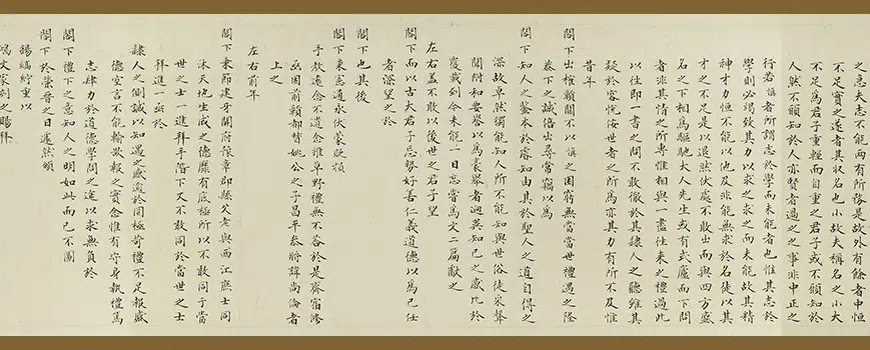 之急夫志不能兩有所務是故外有餘者中恒
不足實之遂者其狀名也小故夫稱名之小大
不足為君子重輕而自重之君子或不願知於
人然不願知於人亦賢者過之之事非中正之
行若慎者所謂志於學而未能者也惟其志於
學則必竭致其力以求之求之而未能故其精
神才力恒不能以他及非能無求於名徒以其
才之不足是以退然伏處不敢出而與四方盛
名之下相為馳騁大人先生或有式廬而下問
者非其情之所專惟相與一盡往來之禮過此
以往即一書之問不敢徹於其隸人之聽雖其
疑於客悅侫世者之所為亦其力有所不及惟
昔年
閣下出權贛關不以慎之困窮無當當世禮遇之隆
眷下之誠倍出尋常竊以為
閣下知人之鑒本於睿知由其於聖人之道自得之
深故卓然獨能知人所不能知與世俗徒采聲
聞附和妄譽以為豪舉者迥異知己之感比於
覆載到今未能一日忘嘗為文二篇獻之
左右蓋不敢以後世之君子望
閣下而以古大君子忘勢好善仁義道德以為己任
者深望之於
閣下也其後
閣下東還道永伏蒙晚損
手教遠念不遺念惟草野禮無不答於是齋宿脩
函囷前贛郡幫姚公之子昌平參將諱尚倫者
上之
左右前年
閣下秉節建牙開府豫章郡縣父老與西江庶士同
沐天地生成之德靡有底極所以不敢同于當
世之士一進拜手階下又不敢同於當世之士
拜進一函於
隸人之側誠以知遇之感逾於同極奇禮不足報盛
德空言不能輸欵報之實念惟有守身執禮篤
志肆力於道德學問之途以求無負於
閣下禮下之意知人之明如此而已不圖
閣下於榮晉之日遽然頒
錫縞紵重以
鴻文篆刻之賜拜